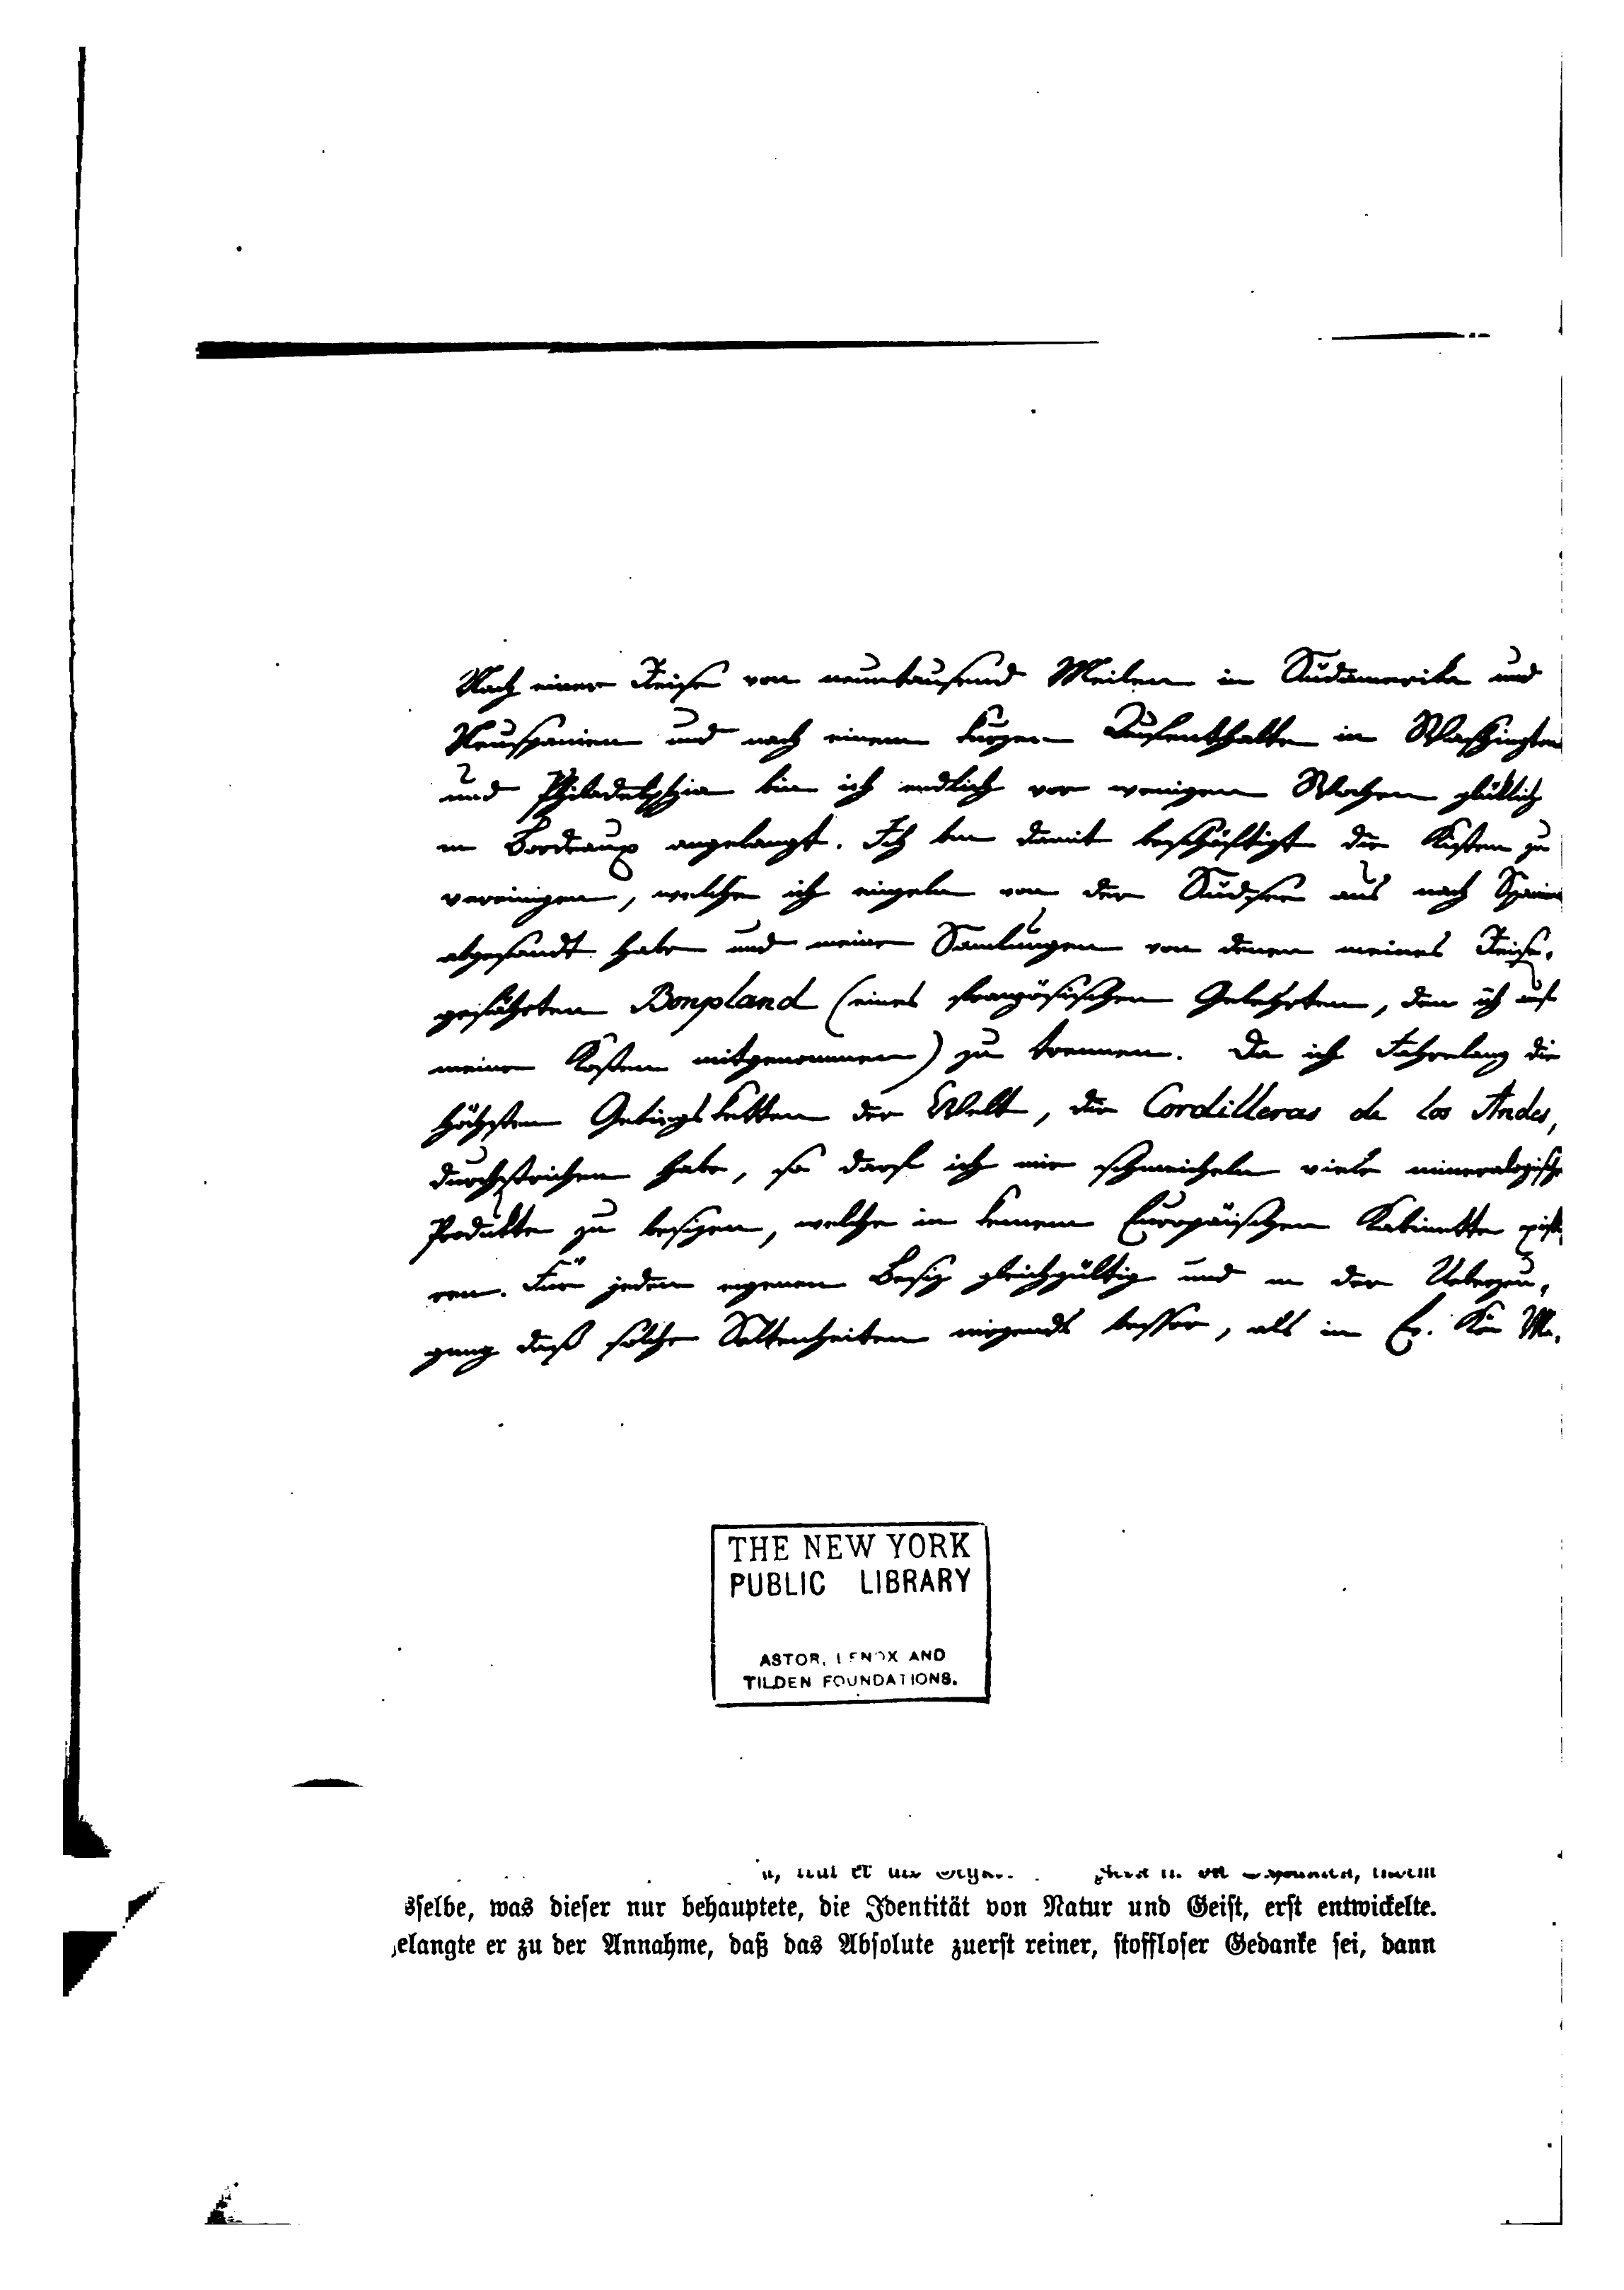 Nach einer Reise von neuntausend Meilen in Südamerika und
Neuspanien und nach einem kurzen Aufenthalte in Washington
und Philadelphia bin ich endlich vor wenigen Wochen glüklich
in Bordeaux angelangt. Ich bin damit beschäftigt die Kisten zu
vereinigen, welche ich einzeln von der Südsee aus nach Spanien
abgesandt habe und meine Samlungen von denen meines Reise-
gefährten Bonpland (eines französischen Gelehrten, den ich auf
meine Kosten mitgenommen) zu trennen. Da ich Jahrelang die
höchsten Gebirgsketten der Welt, die Cordilleras de los Andes,
durchstrichen habe, so darf ich mir schmeicheln viele mineralogische
Produkte zu besizen, welche in keinem Europäischen Kabinette existi-
ren. Für jeden eigenen Besiz gleichgültig und in der Ueberzeu-
gung daß solche Seltenheiten nirgends besser, als in Ew. Kön Ma-
THE NEW YORK
PUBLIC LIBRARY
ASTOR, LENOX AND
TILDEN FOUNDATIONS.
sselbe, was dieser nur behauptete, die Identität von Natur und Geist, erst entwickelte.
elangte er zu der Annahme, daß das Absolute zuerst reiner, stoffloser Gedanke sei, dann